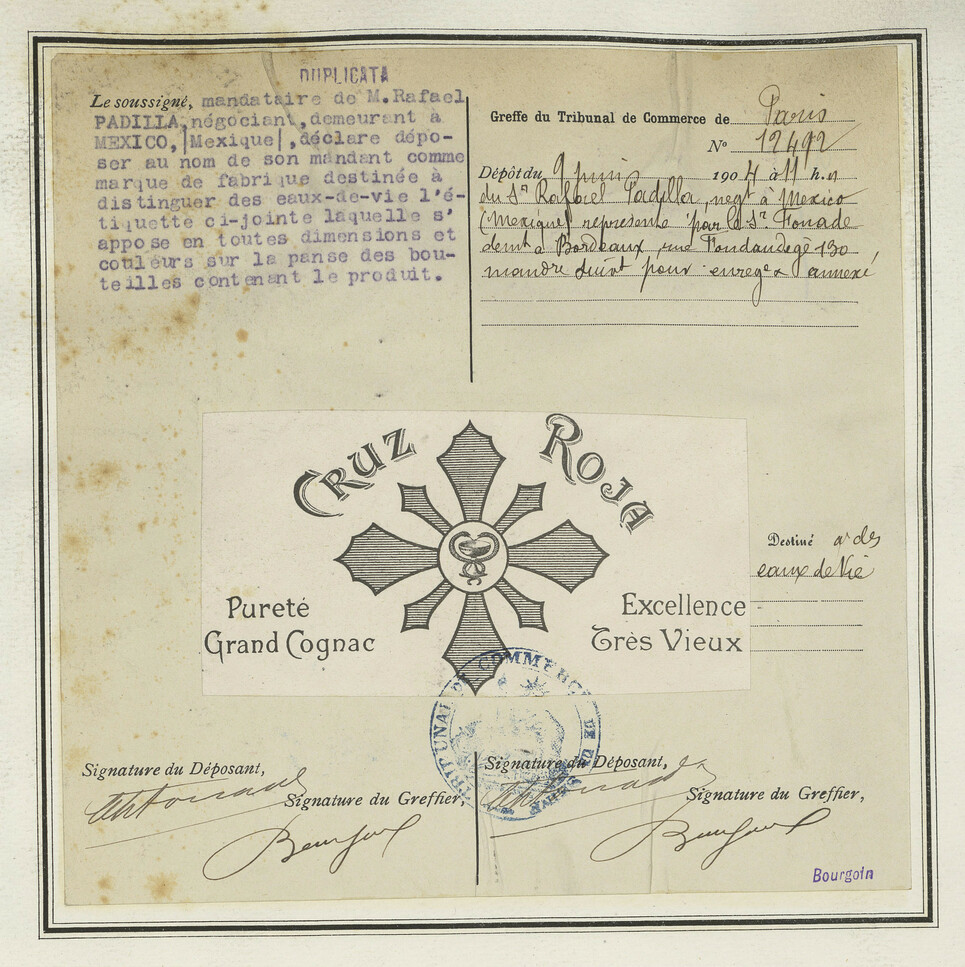 DUPLICATA
Le soussigné, mandataire de M.Rafael
PADILLA,négociant,demeurant à
MEXICO,|Mexique|,déclare dépo-
ser au nom de son mandant comme
marque de fabrique destinée à
distinguer des eaux-de-vie l'é-
tiquette ci-jointe laquelle s'
appose en toutes dimensions et
couleurs sur la panse des bou-
teilles contenant le produit.
Greffe du Tribunal de Commerce de Paris
N° 12492
Dépôt du 9 juin 1904 à 11 h.
du Sr Rafael Padilla, negt à Mexico
(Mexique) représenté par le Sr Fonade
demt à Bordeaux, rue Fondaudège 130
suivt pour enregé annexé
CRUZ ROJA
Pureté
Grand Cognac
Excellence
Très Vieux
Destiné a des
eaux de Vie
TRIBUNAL DE COMMERCE DE LA SEINE
Signature du Déposant,
Signature du Greffier,
Signature du Déposant,
Signature du Greffier,
Bourgoin